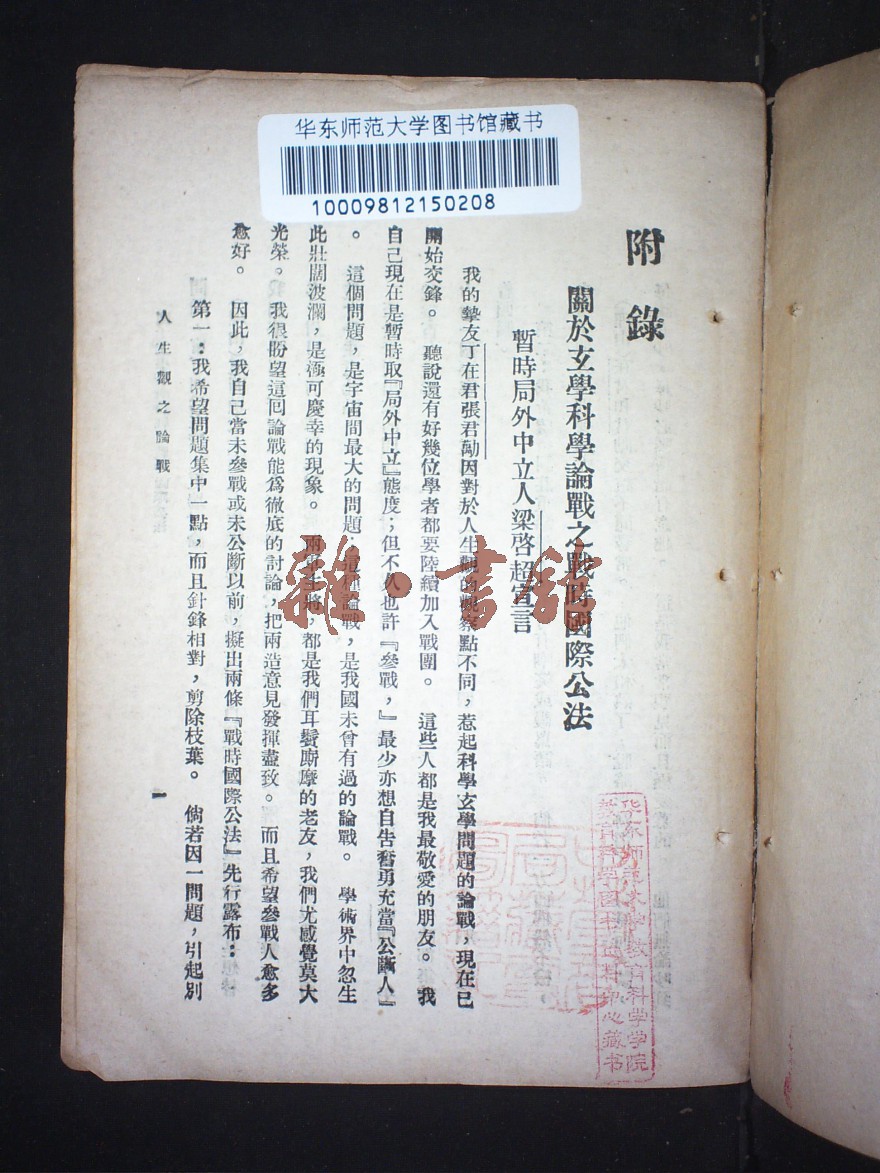 华东师范大学图书馆藏书
10009812150208
附錄
關於玄學科學論戰之戰時國際公法
暫時局外中立人梁啓超宣言
我的摯友丁在君張君勱因對於人生觀的觀察點不同，惹起科學玄學問題的論戰，現在已
開始交鋒。聽說還有好幾位學者都要陸續加入戰團。這些人都是我最敬愛的朋友。我
自己現在是暫時取『局外中立』態度；但不久也許『參戰，』最少亦想自告奮勇充當『公斷人』
。這個問題，是宇宙間最大的問題；這種論戰，是我國未曾有過的論戰。學術界中忽生
此壯闊波瀾，是極可慶幸的現象。兩軍主將，都是我們耳鬢廝摩的老友，我們尤感覺莫大
光榮。我很盼望這回論戰能爲徹底的討論，把兩造意見發揮盡致。而且希望參戰人愈多
愈好。因此，我自己當未參戰或未公斷以前，擬出兩條『戰時國際公法』先行露布：
第一：我希望問題集中一點，而且針鋒相對，剪除枝葉。倘若因一問題，引起別
人生觀之論戰
一
雜·書館
华东师范大学教育科学学院
教育科学图书资料中心藏书